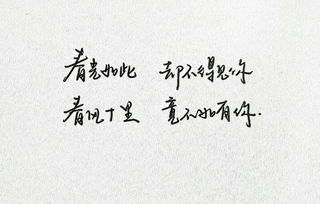 春光如此 却不得见你
春风十里 竟不如有你.